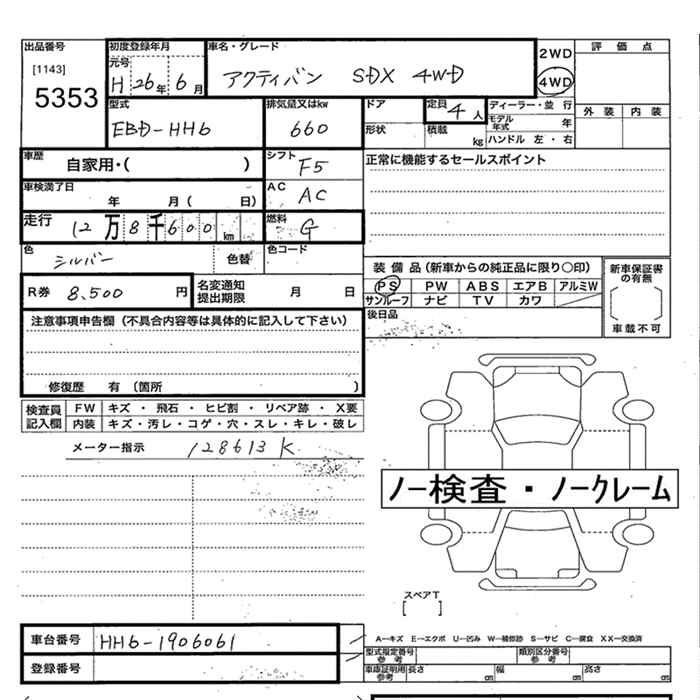 出品番号
[1143]
5353
初度登録年月
元号
H 26年 6月
車名・グレード
アクティバン SDX 4WD
2WD
4WD
評価点
外装 内装
型式
EBD-HH6
排気量又はkw
660
ドア
形状
定員
4人
積載
kg
ディーラー・並行
モデル年式
年
ハンドル 左・右
車歴
自家用・( )
シフト
F5
正常に機能するセールスポイント
車検満了日
年 月( 日)
AC
AC
走行
12万8千600km
燃料
G
色
シルバー
色替
色コード
R券 8,500 円
名変通知
提出期限
月 日
装備品(新車からの純正品に限り○印)
PS PW ABS エアB アルミW
サンルーフ ナビ TV カワ
新車保証書
の有無
[ ]
車載不可
後日品
注意事項申告欄(不具合内容等は具体的に記入して下さい)
修復歴 有(箇所 )
検査員
記入欄
FW キズ・飛石・ヒビ割・リペア跡・X要
内装 キズ・汚レ・コゲ・穴・スレ・キレ・破レ
メーター指示 128613K
ノー検査・ノークレーム
スペアT
[ ]
車台番号 HH6-1906061
登録番号
A―キズ E―エクボ U―凹み W―補修跡 S―サビ C―腐食 XX―交換済
型式指定番号
参考
類別区分番号
参考
車庫証明用
参考
長さ cm 幅 cm 高さ cm